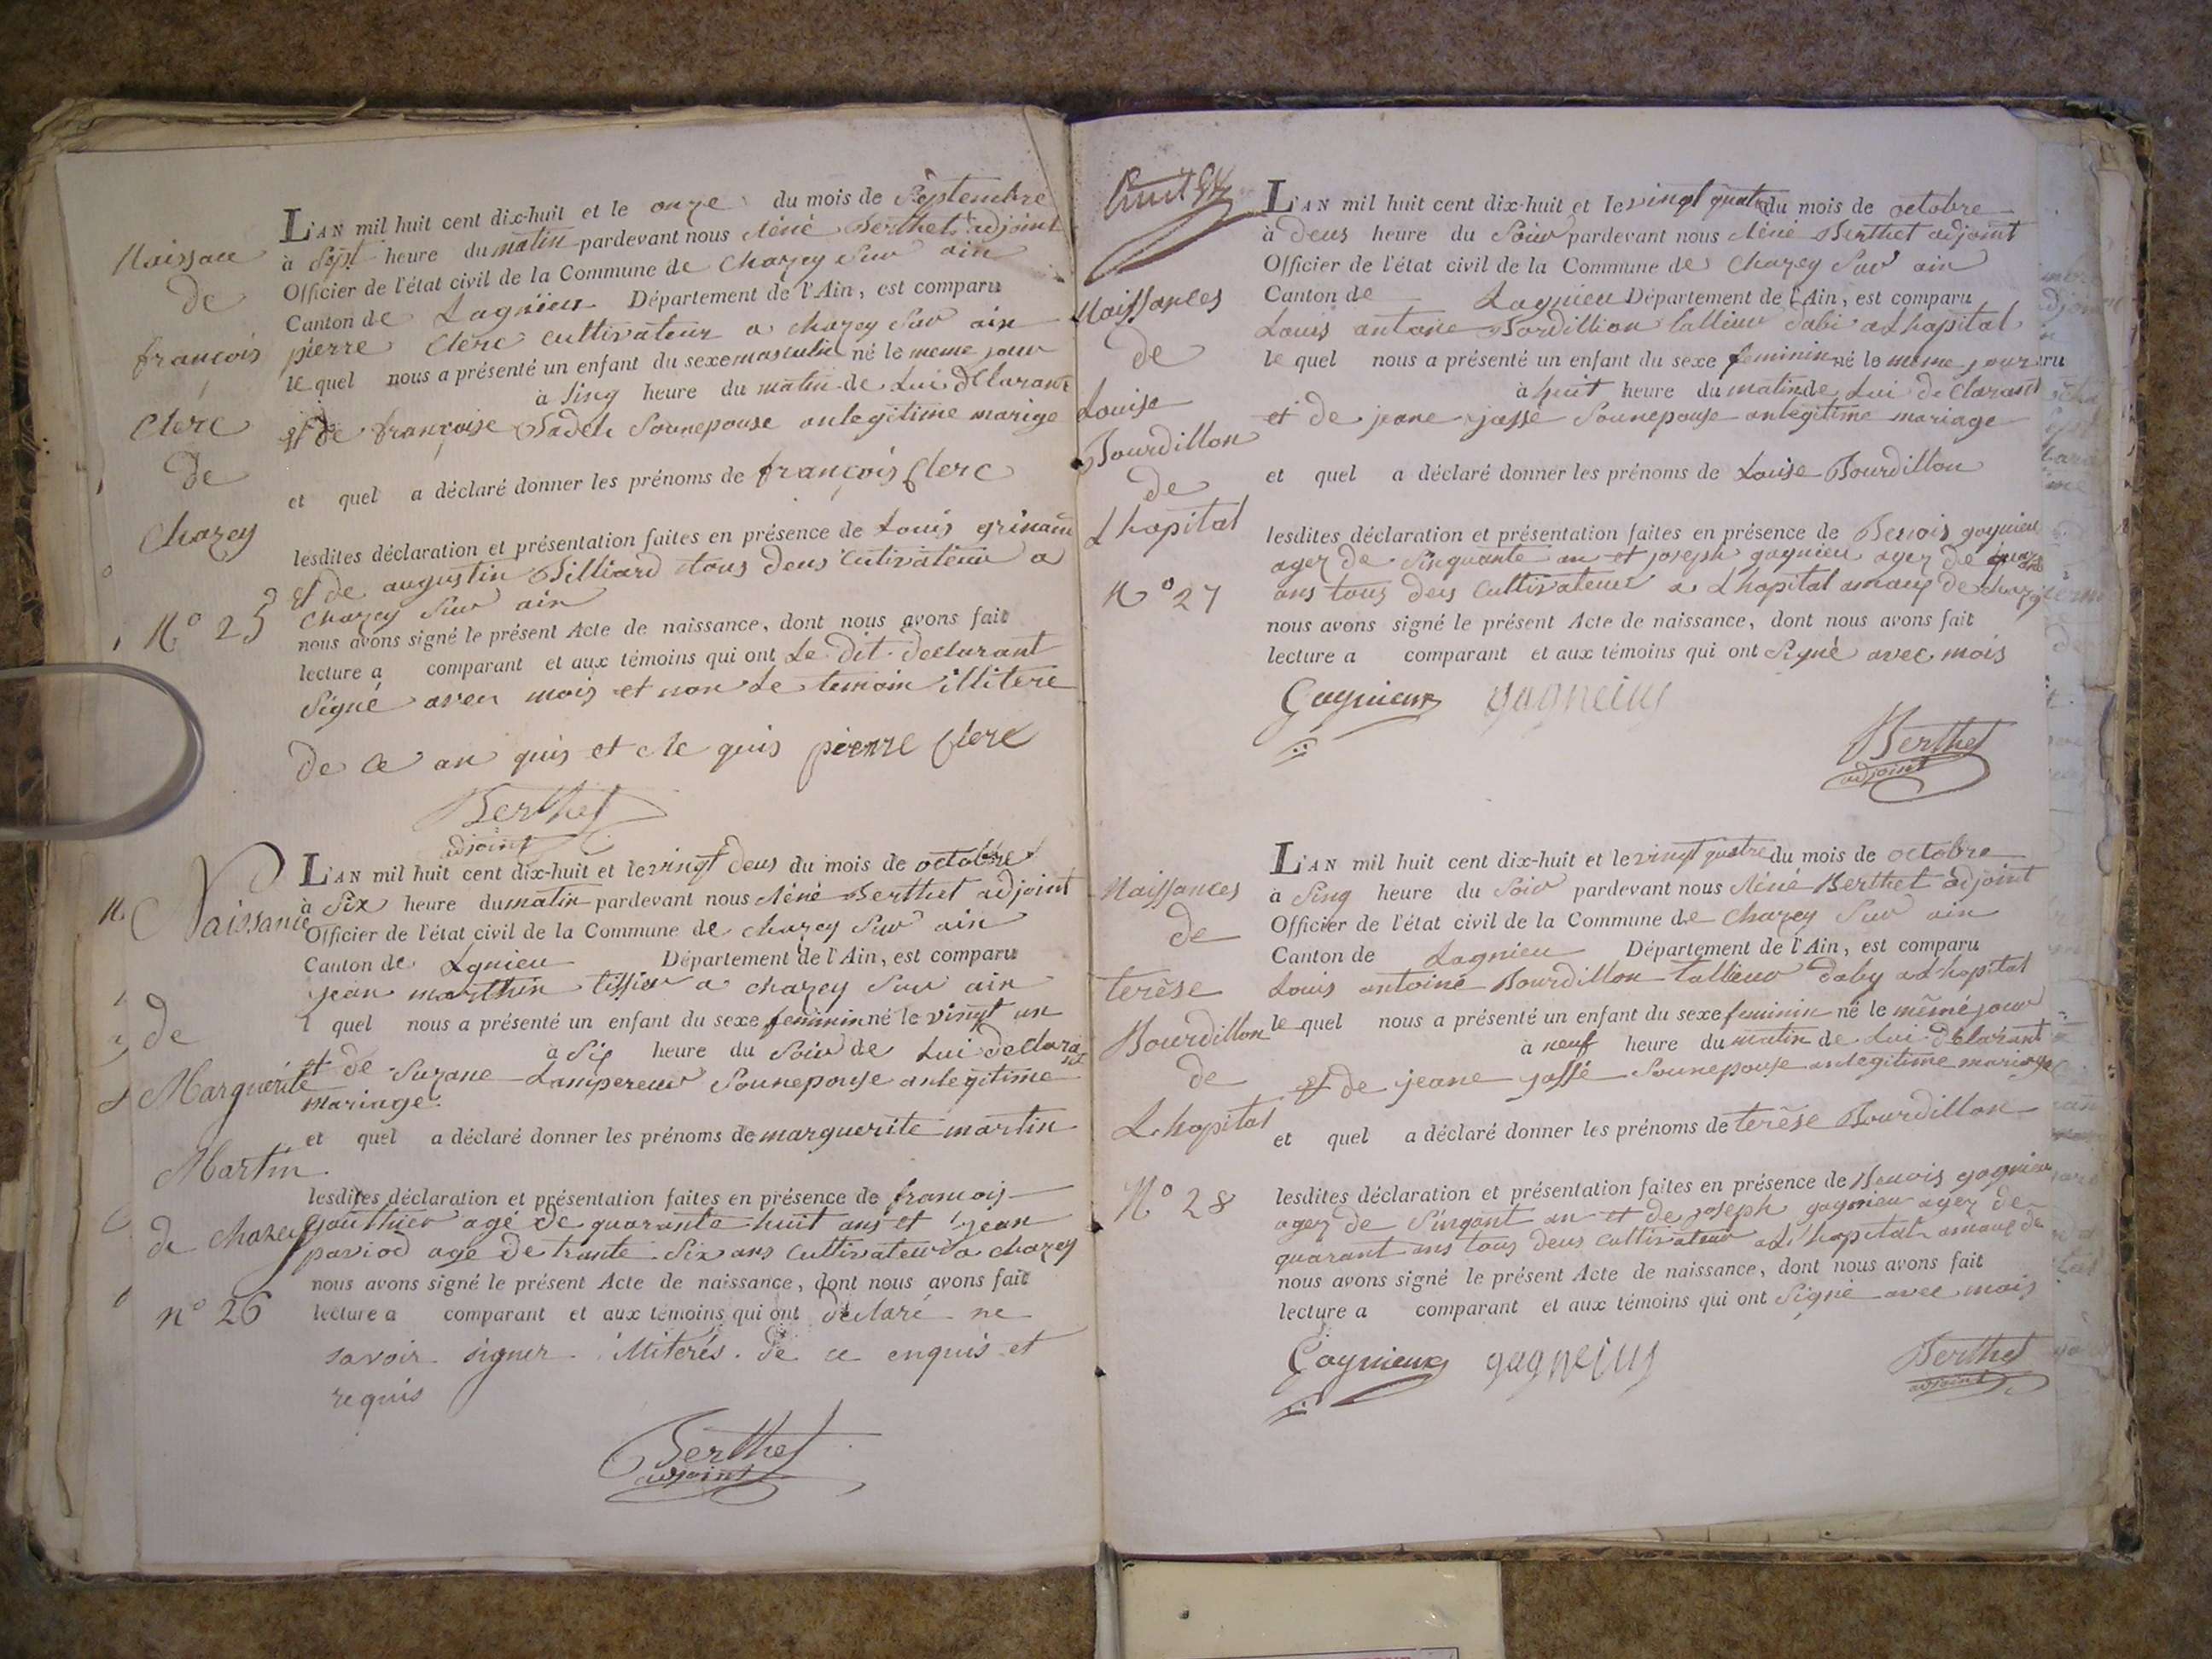 Naissance
de
françois
Clerc
de
Chazey
N° 25
L'AN mil huit cent dix-huit et le onze du mois de Septembre
à Sept heure du matin pardevant nous Réné Berthet adjoint
Officier de l'état civil de la Commune de Chazey Sur ain
Canton de Lagnieu Département de l'Ain, est comparu
pierre Clerc cultivateur a chazey Sur ain
le quel nous a présenté un enfant du sexe masculin né le meme jour
à Sinq heure du matin de Lui déClarant
et de françoise Sounepouse anlegitime marige
et quel a déclaré donner les prénoms de françois Clerc
lesdites déclaration et présentation faites en présence de Louis
et de augustin Billiard tous deus Cutivateur a
Chazey Sur ain
nous avons signé le présent Acte de naissance, dont nous avons fait
lecture a comparant et aux témoins qui ont Le dit declarant
Signé avec mois et non Le temoin illitere
de Ce an quis et Re quis pierre Clerc
Berthet
adjoint
Naissance
de
Marguerite
Martin
de chazey
n° 26
L'AN mil huit cent dix-huit et le vingt deus du mois de octobre
à Six heure du matin pardevant nous Réné Berthet adjoint
Officier de l'état civil de la Commune de chazey Sur ain
Canton de Lgnieu Département de l'Ain, est comparu
jean marthin tissier a chazey Sur ain
l quel nous a présenté un enfant du sexe feminin né le vingt un
à Six heure du Soir de Lui declarant
et de Suzane Lampereur Sounepouse anlegitime
mariage
et quel a déclaré donner les prénoms de marguerite martin
lesdites déclaration et présentation faites en présence de francois
gouthier agé de quarante huit ans et jean
paviod age de trante Six ans cultivateur a chazey
nous avons signé le présent Acte de naissance, dont nous avons fait
lecture a comparant et aux témoins qui ont declaré ne
savoir signer illiterés. de ce enquis et
requis
Berthet
adjoint
Naissances
de
Louise
Bourdillon
de
Lhopital
N° 27
L'AN mil huit cent dix-huit et le vingt quatre du mois de octobre
à deus heure du Soir pardevant nous Réné Berthet adjoint
Officier de l'état civil de la Commune de Chazey Sur ain
Canton de Lagnieu Département de l'Ain, est comparu
Louis antoine Bordillion tallieur dabi a Lhapital
le quel nous a présenté un enfant du sexe feminin né le meme jour
à huit heure du matin de Lui deClarant
et de jeane jassé Sounepouse anlegitime mariage
et quel a déclaré donner les prénoms de Louise Bourdillon
lesdites déclaration et présentation faites en présence de Benois gagnieu
agez de Sinquante an et joseph gagnieu agez de
ans tous deus Cultivateur a Lhopital amaux de chazey
nous avons signé le présent Acte de naissance, dont nous avons fait
lecture a comparant et aux témoins qui ont Signé avec mois
Gagnieux gagneius
Berthet
adjoint
Naissances
de
terèse
Bourdillon
de
Lhopital
N° 28
L'AN mil huit cent dix-huit et le vingt quatre du mois de octobre
à Sinq heure du Soir pardevant nous Réné Berthet adjoint
Officier de l'état civil de la Commune de Chazey Sur ain
Canton de Lagnieu Département de l'Ain, est comparu
Louis antoine Bourdillon tallieur daby a Lhopital
le quel nous a présenté un enfant du sexe feminin né le même jour
à neuf heure du matin de Lui declarant
et de jeane jassé Sounepouse anlegitime mariage
et quel a déclaré donner les prénoms de terèse Bourdillon
lesdites déclaration et présentation faites en présence de Benois gagnieu
agez de Sinqant an et de joseph gagnieu agez de
quarant ans tous deus Cultivateur a L'hapital amaux de
nous avons signé le présent Acte de naissance, dont nous avons fait
lecture a comparant et aux témoins qui ont Signé avec mois
Gagnieux gagneius
Berthet
adjoint